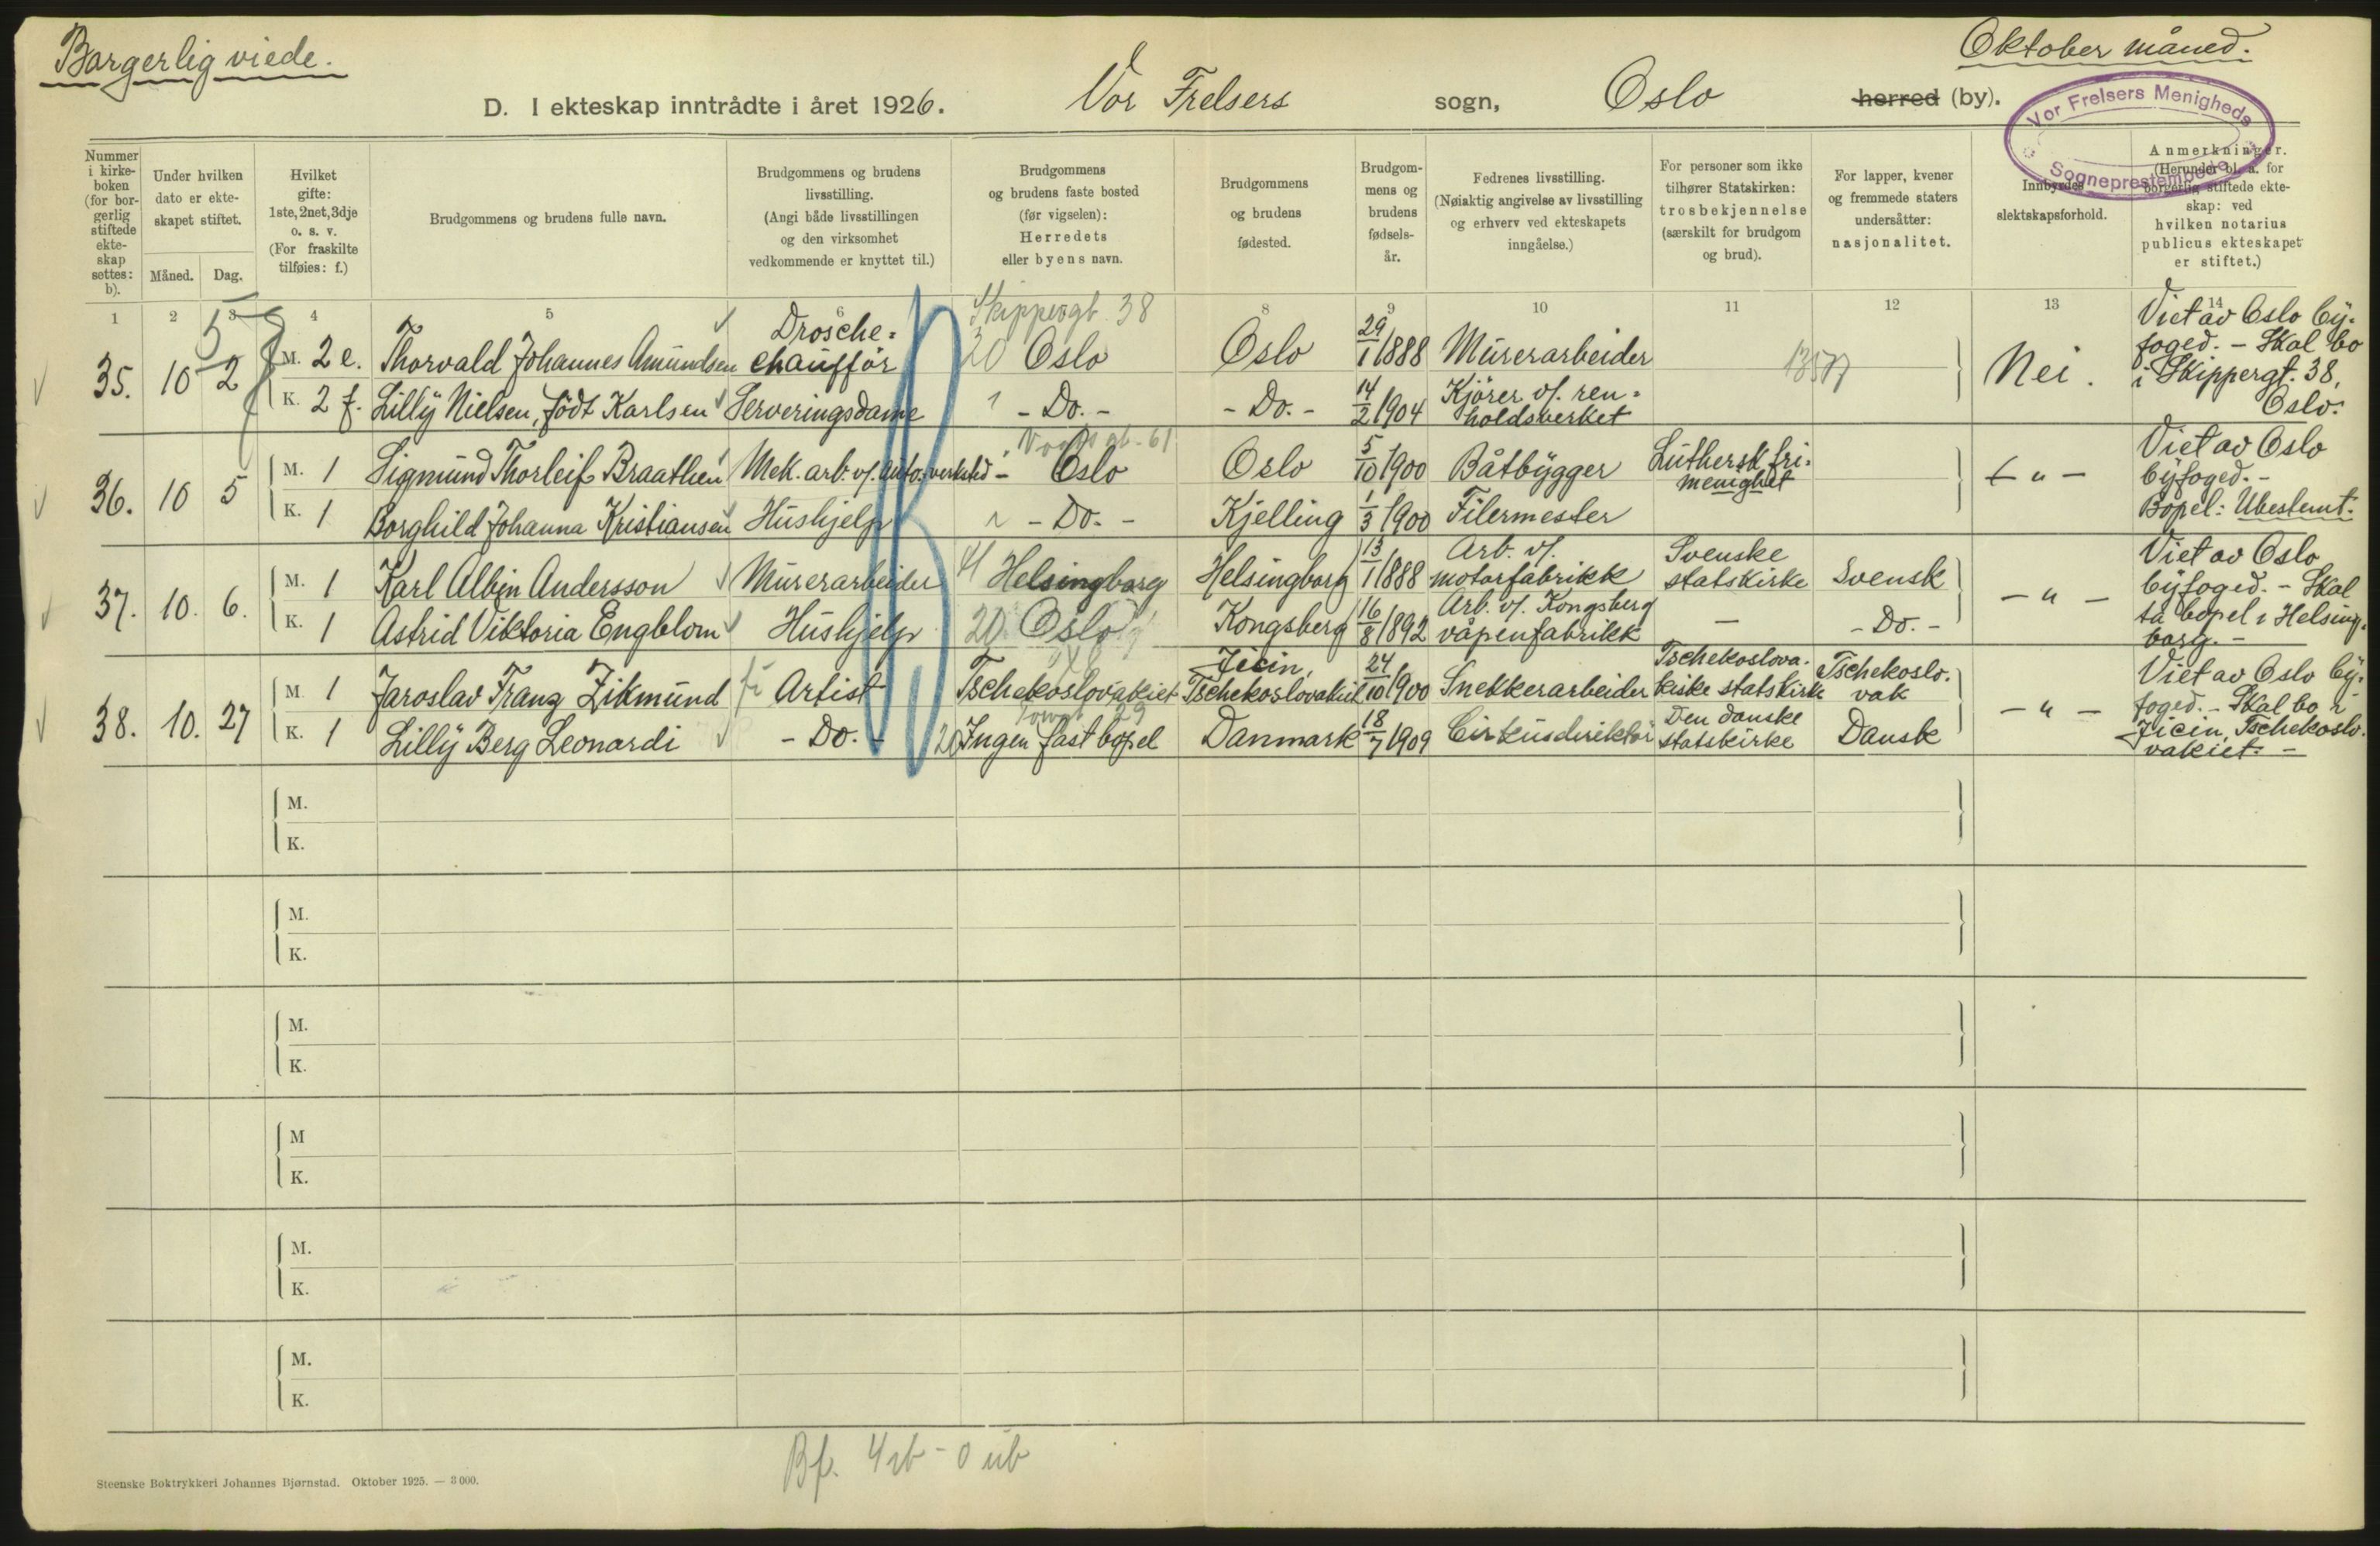 Borgerlig viede.
Oktober måned.
D. I ekteskap inntrådte i året 1926. Vor Frelsers sogn, Oslo herred (by).
Vor Frelsers Menigheds
Sogneprestembede
Nummer i kirke- boken (for bor- gerlig stiftede ekte- skap settes: b).
Under hvilken dato er ekte- skapet stiftet.
Måned. Dag.
Hvilket gifte: 1ste, 2net, 3dje o. s. v. (For fraskilte tilføies: f.)
Brudgommens og brudens fulle navn.
Brudgommens og brudens livsstilling. (Angi både livsstillingen og den virksomhet vedkommende er knyttet til.)
Brudgommens og brudens faste bosted (før vigselen): Herredets eller byens navn.
Brudgommens og brudens fødested.
Brudgom- mens og brudens fødsels- år.
Fedrenes livsstilling. (Nøiaktig angivelse av livsstilling og erhverv ved ekteskapets inngåelse.)
For personer som ikke tilhører Statskirken: trosbekjennelse (særskilt for brudgom og brud).
For lapper, kvener og fremmede staters undersåtter: nasjonalitet.
Innbyrdes slektskapsforhold.
Anmerkninger. (Herunder bl. a. for borgerlig stiftede ekte- skap: ved hvilken notarius publicus ekteskapet er stiftet.)
1 2 3 4 5 6 8 9 10 11 12 13 14
5
Skippergt. 38
35. 10 2 M. 2 e. Thorvald Johannes Amundsen Drosche= chauffør 20 Oslo Oslo 29/1 1888 Murerarbeider Nei. Viet av Oslo by- foged. - Skal bo i Skippergt. 38, Oslo.
K. 2 f. Lilly Nielsen, født Karlsen Serveringsdame - Do. - - Do. - 14/2 1904 Kjører v/. ren= holdsverket
36. 10 5 M. 1 Sigmund Thorleif Braathen Mek. arb. v/. auto. verksted - Oslo Oslo 5/10 1900 Båtbygger Luthersk fri= menighet - " - Viet av Oslo byfoged. - Bopel: Ubestemt.
K. 1 Borghild Johanna Kristiansen Hushjelp - Do. - Kjelling 1/3 1900 Filermester
37. 10. 6. M. 1 Karl Albin Andersson Murerarbeider Helsingborg Helsingborg 13/1 1888 Arb. v/. motorfabrikk Svenske statskirke Svensk - " - Viet av Oslo byfoged. - Skal ta bopel i Helsing- borg. -
K. 1 Astrid Viktoria Engblom Hushjelp 20 Oslo Kongsberg 16/8 1892 Arb. v/. Kongsberg våpenfabrikk - - Do. -
38. 10. 27 M. 1 Jaroslav Franz Zikmund Artist Tschekoslovakiet Jicin, Tschekoslovakiet 24/10 1900 Snekkerarbeider Tschekoslova- kiske statskirke Tschekoslo- vak - " - Viet av Oslo by- foged. - Skal bo i Jicin, Tschekoslo- vakiet. -
K. 1 Lilly Berg Leonardi - Do. - 20 Ingen fast bopel Danmark 18/7 1909 Cirkusdirektør Den danske statskirke Dansk
M.
K.
M.
K.
M.
K.
M
K.
M.
K.
M.
K.
Steenske Boktrykkeri Johannes Bjørnstad. Oktober 1925. — 3 000.